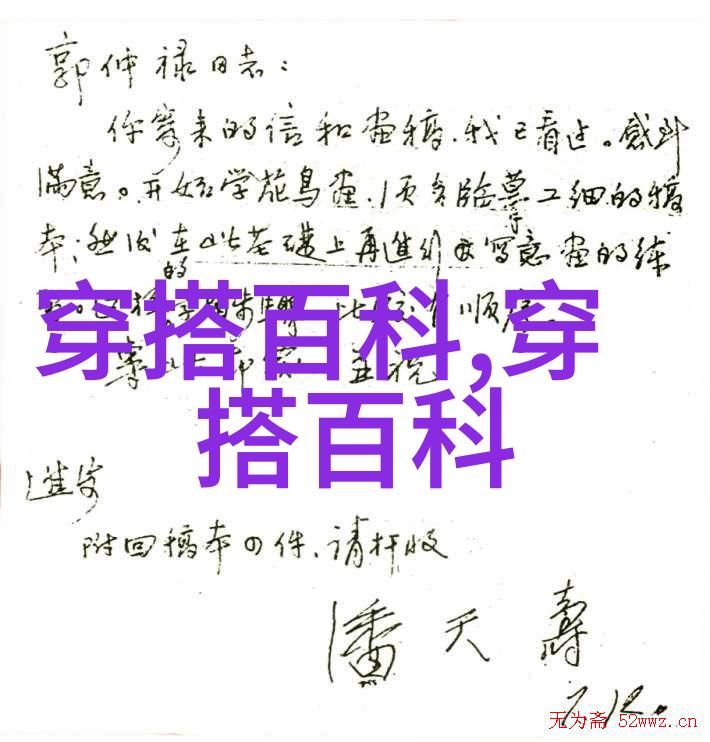 郭仲禄同志：
你寄来的信和画稿，我已看过。感到
满意。开始学花鸟画，须多临摹工细的稿
本；然后在此基础上再进行写意画的练
的
顺序
穿搭百科,穿
搭百科
进安
附回稿本四件、请检收
潘天寿
7.12.
无为斋 52wwz.cn